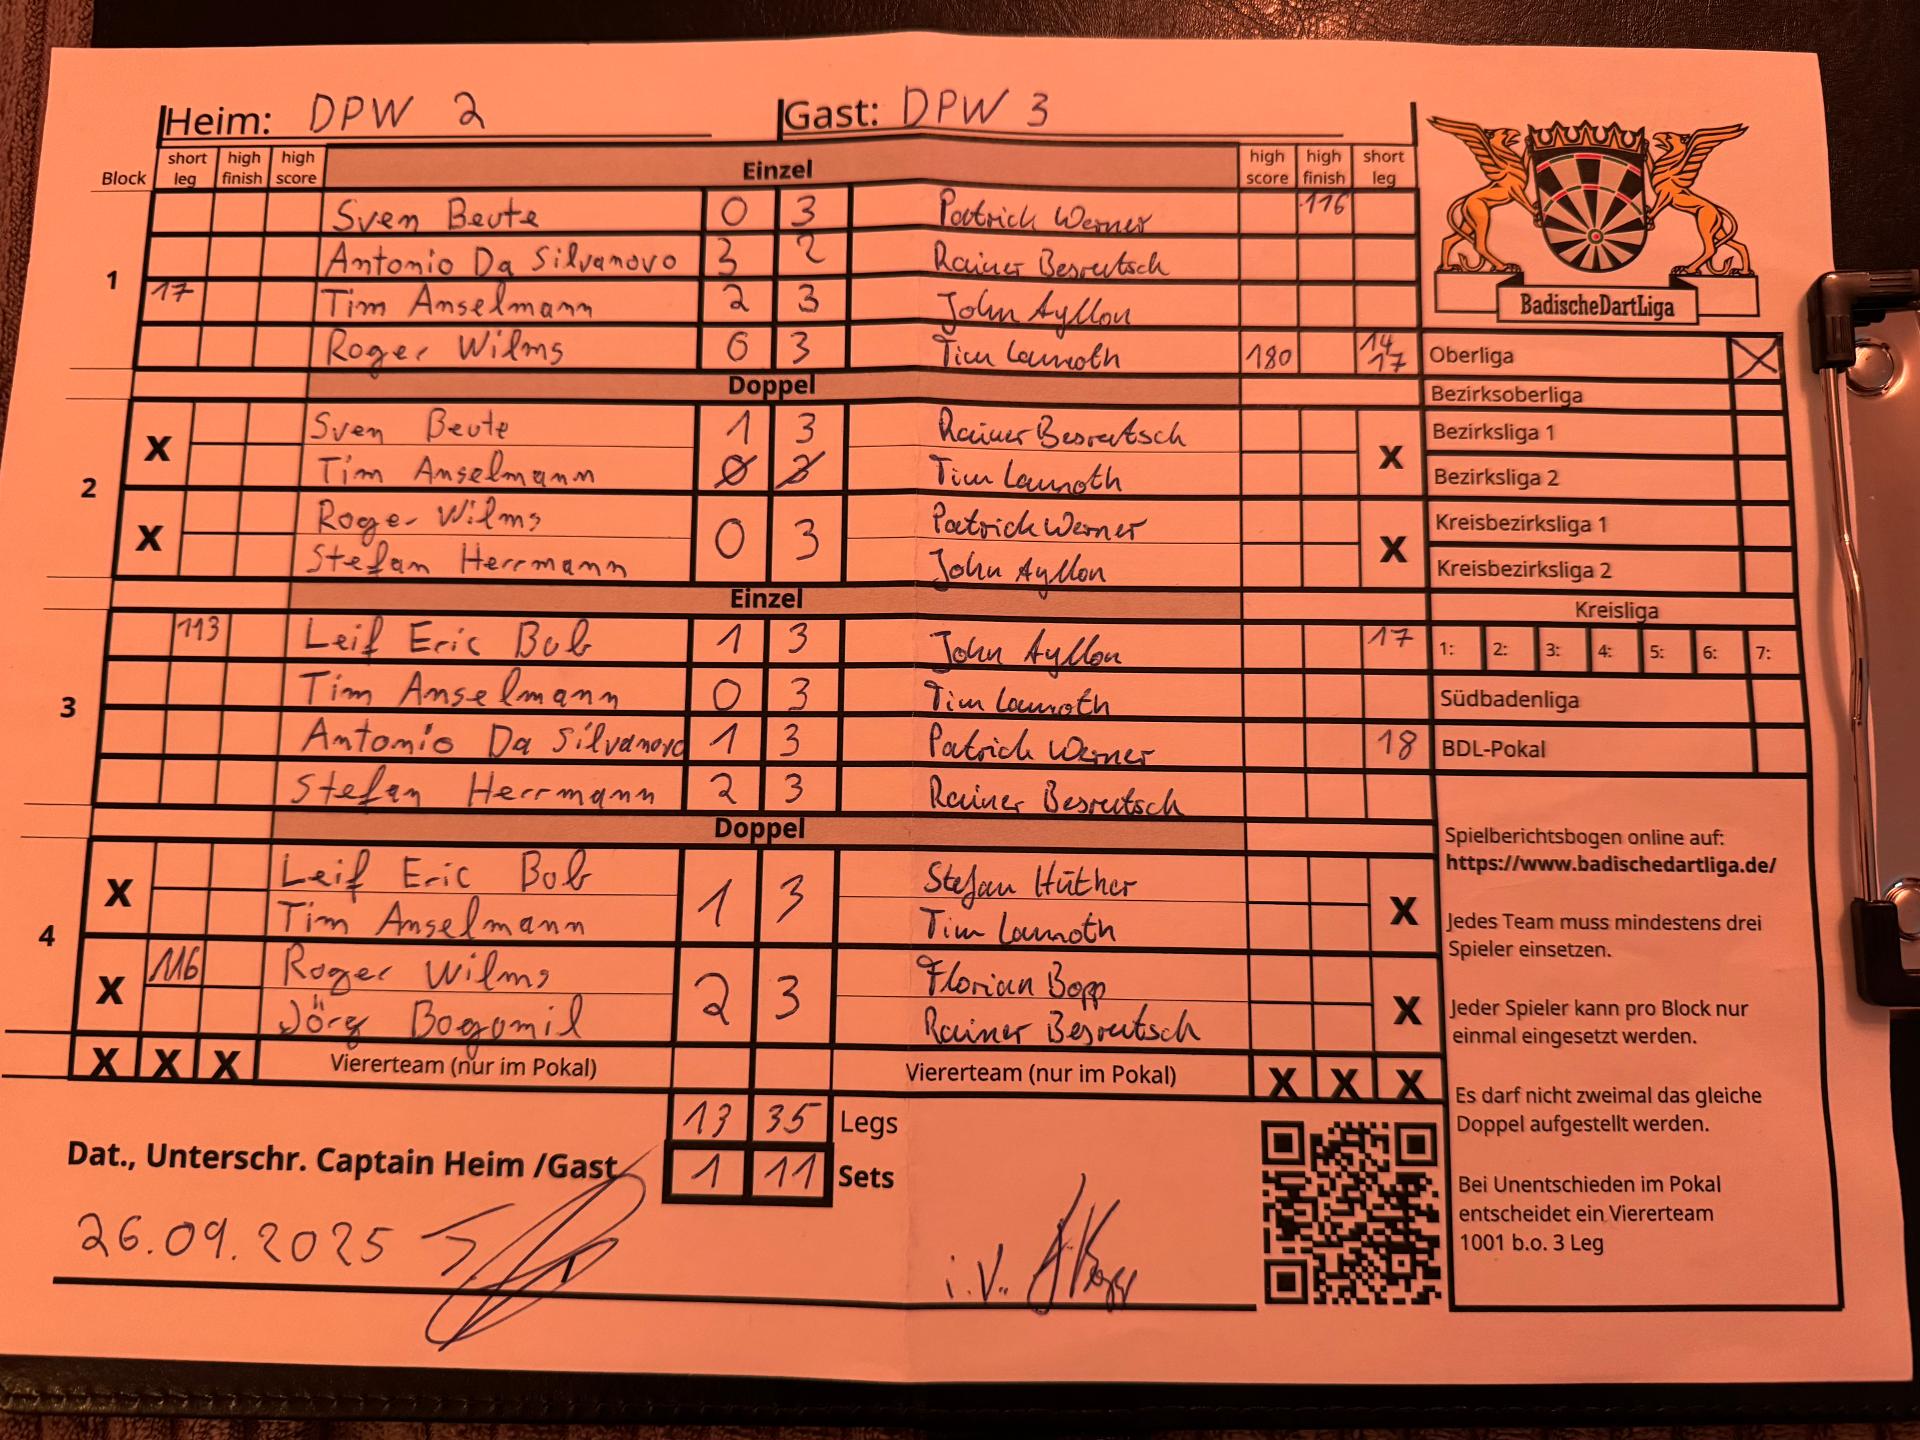 Heim: DPW 2 Gast: DPW 3
Block short leg high finish high score Einzel high score high finish short leg
1
Sven Beute 0 3 Patrick Werner 116
Antonio Da Silvanovo 3 2 Rainer Besreutsch
17 Tim Anselmann 2 3 John Ayllon
Roger Wilms 0 3 Tim Lamoth 180 14 17
Doppel
2
X Sven Beute 1 3 Rainer Besreutsch X
Tim Anselmann 0 3 Tim Lamoth
X Roger Wilms 0 3 Patrick Werner X
Stefan Herrmann John Ayllon
Einzel
3
113 Leif Eric Bob 1 3 John Ayllon 17
Tim Anselmann 0 3 Tim Lamoth
Antonio Da Silvanovo 1 3 Patrick Werner 18
Stefan Herrmann 2 3 Rainer Besreutsch
Doppel
4
X Leif Eric Bob 1 3 Stefan Hüther X
Tim Anselmann Tim Lamoth
X 116 Roger Wilms 2 3 Florian Bopp X
Jörg Bogomil Rainer Besreutsch
X X X Viererteam (nur im Pokal) Viererteam (nur im Pokal) X X X
13 35 Legs
1 11 Sets
Dat., Unterschr. Captain Heim /Gast
26.09.2025
i.V.
BadischeDartLiga
Oberliga X
Bezirksoberliga
Bezirksliga 1
Bezirksliga 2
Kreisbezirksliga 1
Kreisbezirksliga 2
Kreisliga
1: 2: 3: 4: 5: 6: 7:
Südbadenliga
BDL-Pokal
Spielberichtsbogen online auf:
https://www.badischedartliga.de/
Jedes Team muss mindestens drei
Spieler einsetzen.
Jeder Spieler kann pro Block nur
einmal eingesetzt werden.
Es darf nicht zweimal das gleiche
Doppel aufgestellt werden.
Bei Unentschieden im Pokal
entscheidet ein Viererteam
1001 b.o. 3 Leg